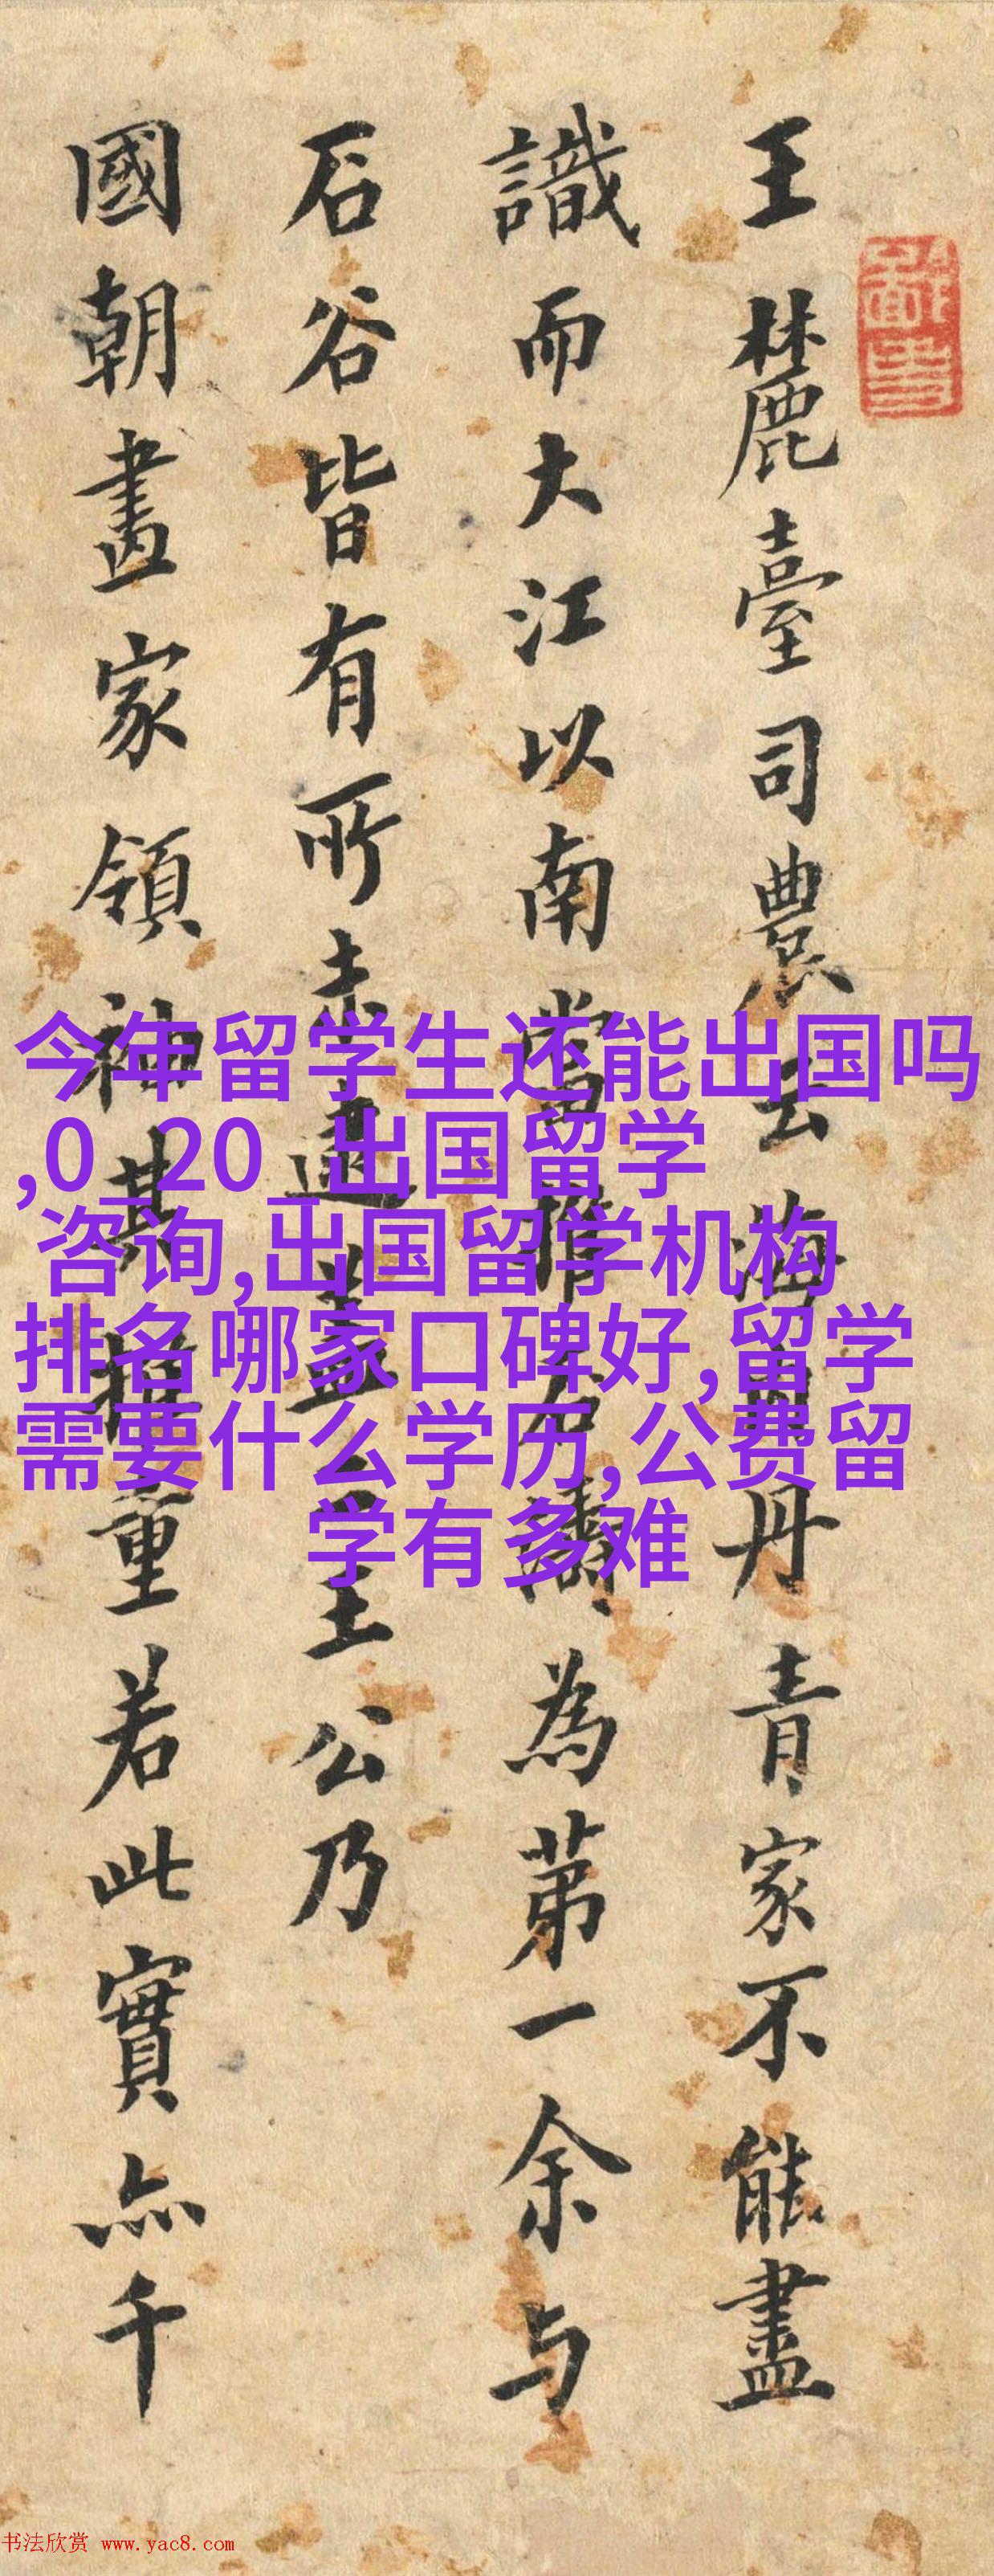 王麓臺司農云海內丹青家不能盡
識而大江以南當推石濤為第一余与
石谷皆有所未逮蓋王公乃
國朝畫家領神其推重若此實亦千
今年留学生还能出国吗
,0_20_出国留学
咨询,出国留学机构
排名哪家口碑好,留学
需要什么学历,公费留
学有多难
书法欣赏 www.yac8.com